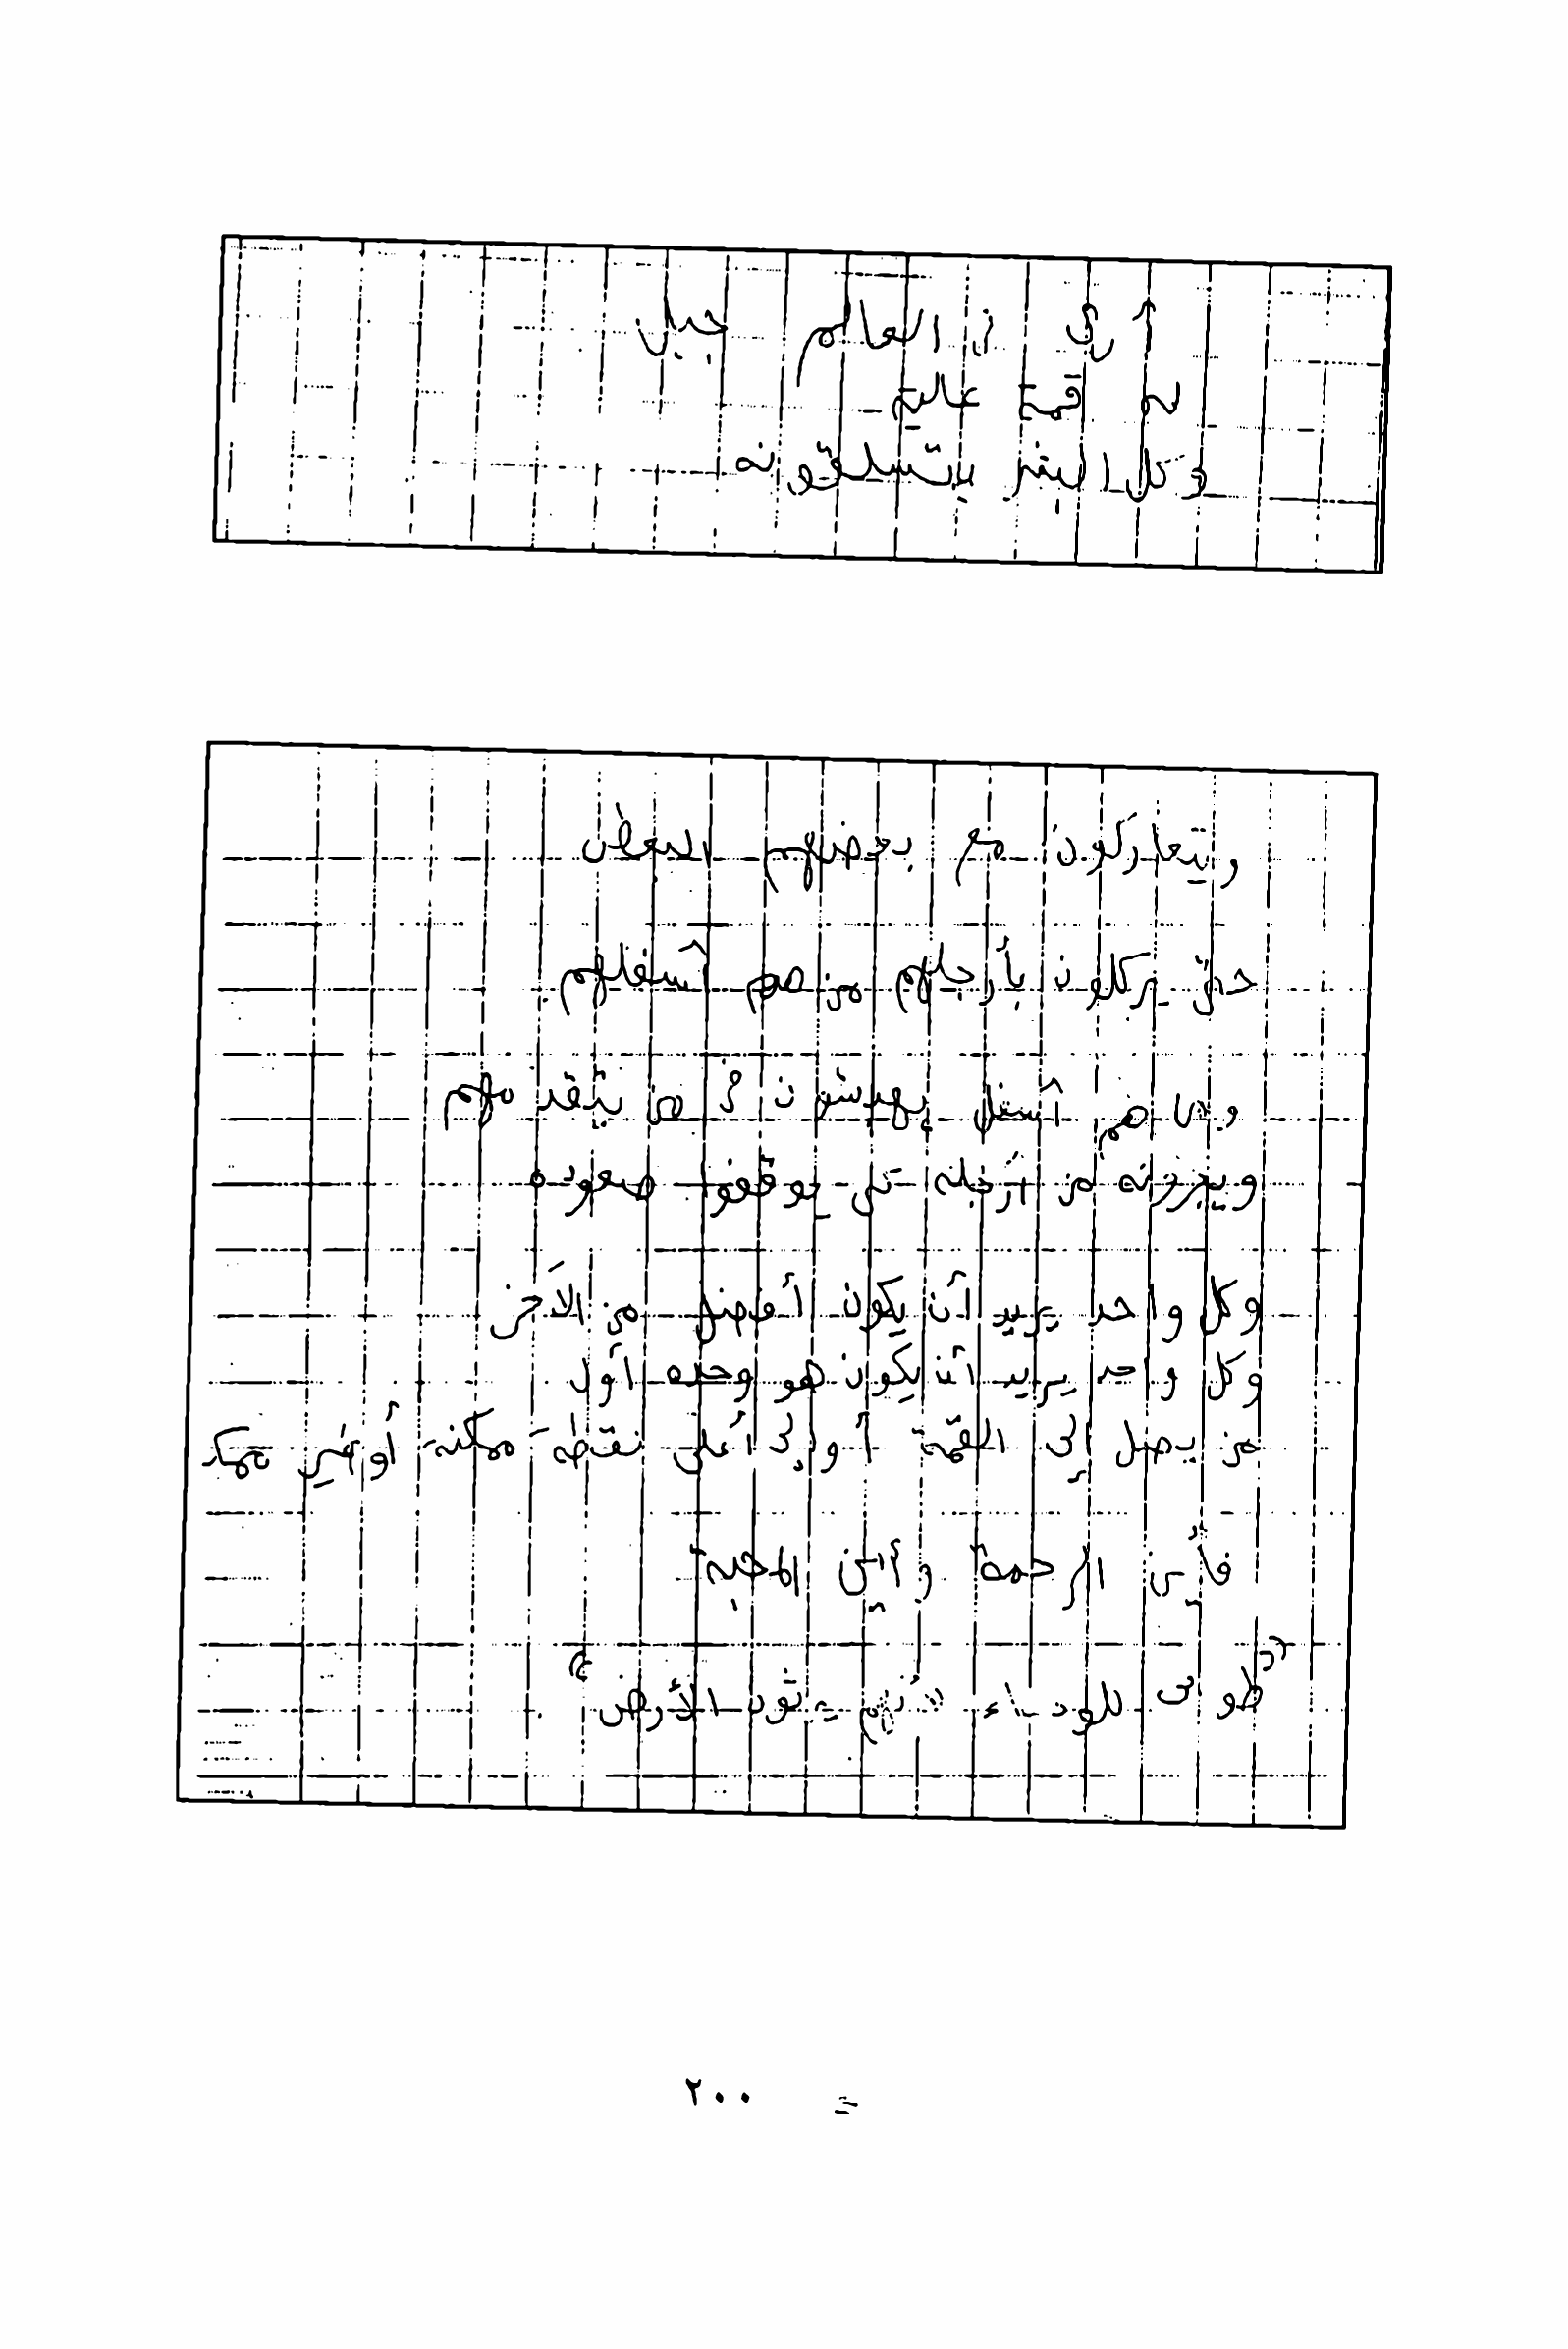 أرى في العالم جبل
له قمة عالية
وكل البشر يتسلقونه
ويتعاركون مع بعضهم البعض
حتى يركلون بأرجلهم من هم أسفلهم
هم أسفل يهبشون في من يتقدمهم
ويجرونه من أرجله كي يوقفوا صعوده
وكل واحد يريد أن يكون أفضل من الآخر
وكل واحد يريد أن يكون هو وحده أول
من يصل إلى القمة أو إلى أعلى نقطة ممكنة أو غير
فأين الرحمة وأين المحبة
"طوبى للودعاء لأنهم يرثون الأرض"
٢٠٠ =